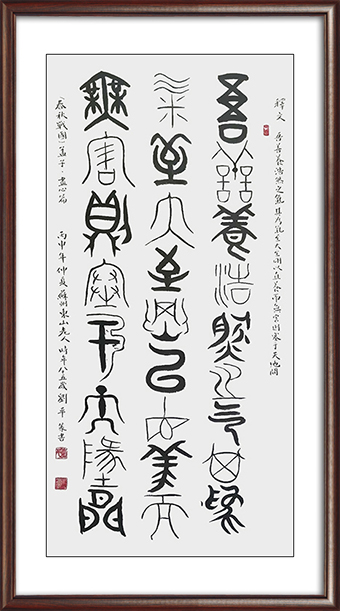 釋文 吾善養浩然之氣其为氣至大至剛以直養而無害則塞于天地間
吾善養浩然之氣其為
氣至大至剛以直養而
無害則塞于天地間
（春秋戰國）孟子·盡心篇 丙申年仲夏蘇州東山老人時年八五歲劉平篆書